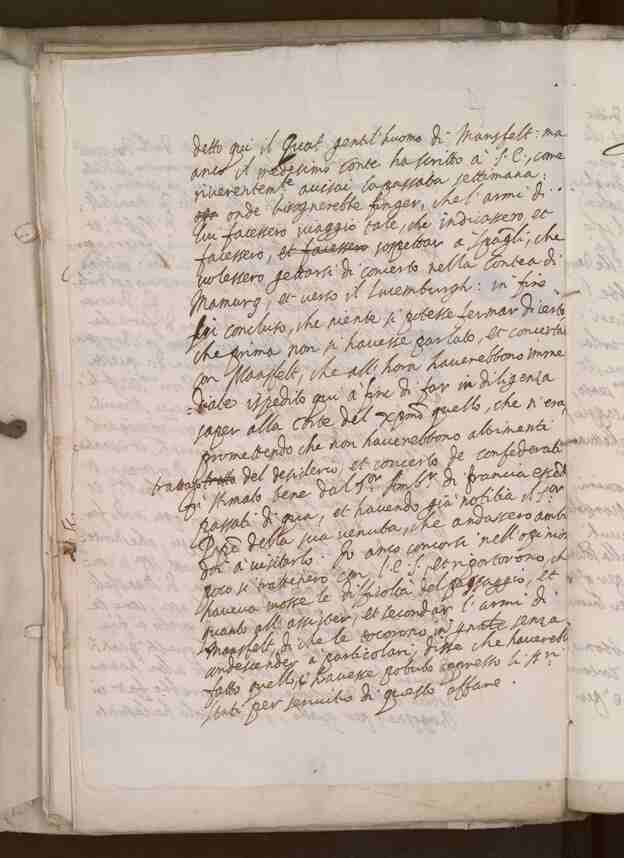 detto qui il Gual gentil'huomo di Mansfelt: ma
anco il medesimo conte ha scritto à S. E., come
riverentem.te avisai la passata settimana:
onde bisognerebbe finger, che l'armi di
lui facessero viaggio tale, che indicassero, et
facessero, et facessero sospettar a Spagli, che
volessero gettarsi di concerto nella Contea di
Namurg, et verso il Lucemburgh: in fine
fù concluso, che niente si potesse fermar di certo
che prima non si havesse parlato, et concertato
con Mansfelt, che all'hora haverebbono imme
diate ispedito qui à fine di far in diligenza
saper alla Corte del Xpmo quello, che n'era,
promettendo che non haverebbono altrimenti
trattato del desiderio, et concerto de confederati
passati di qua, et havendo già notitia il S.or
della sua venuta, che andassero ambi
doi à visitarlo. Io anco concorsi nell'opinione
poco si trattenero con S. E., et riportorono, ch
haveva mosse le difficoltà del passaggio, et
quanto all'assister, et secondar l'armi di
Mansfelt, di che le toccorono un senza
condescender a particolari, disse che haverebbe
fatto quello, havesse potuto appresso li Sri
stati per servitio di questo affare.